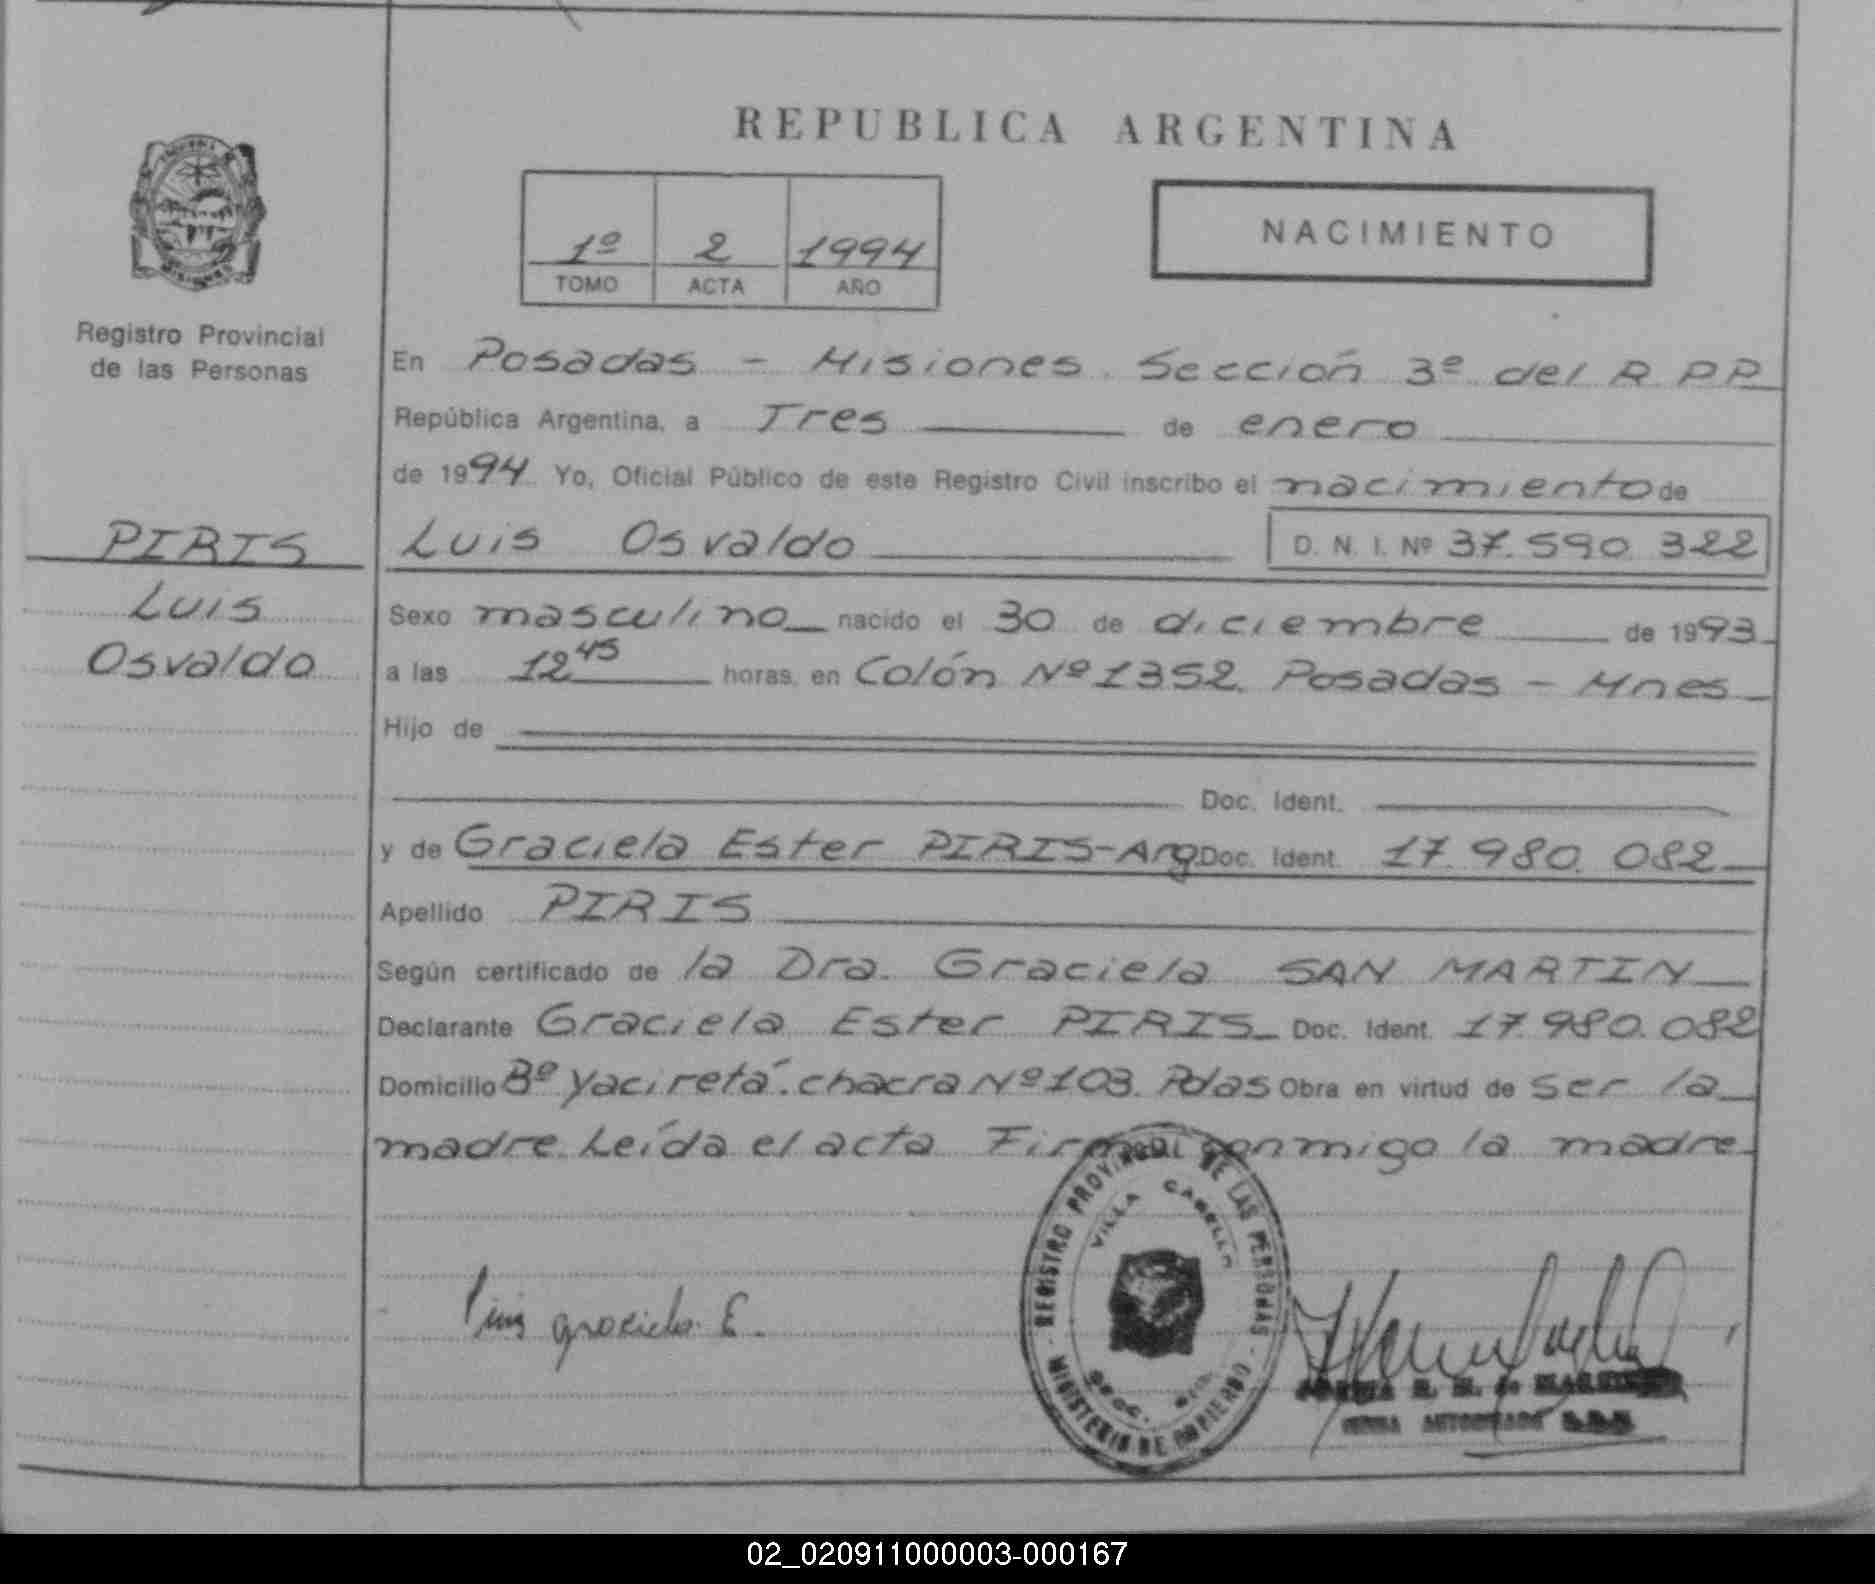 REPUBLICA ARGENTINA
1º 2 1994
TOMO ACTA AÑO
NACIMIENTO
Registro Provincial
de las Personas
PIRIS
Luis
Osvaldo
En Posadas - Misiones. Sección 3º del R.P.P.
República Argentina, a Tres de enero
de 1994 Yo, Oficial Público de este Registro Civil inscribo el nacimiento de
Luis Osvaldo D. N. I. Nº 37.590.322
Sexo masculino nacido el 30 de diciembre de 1993
a las 12 45 horas, en Colón Nº 1352. Posadas - Mnes
Hijo de
Doc. Ident.
y de Graciela Ester PIRIS-Arg Doc. Ident. 17.980.082
Apellido PIRIS
Según certificado de la Dra. Graciela SAN MARTIN
Declarante Graciela Ester PIRIS Doc. Ident. 17.980.082
Domicilio Bº Yacireta. chacra Nº 103. Pdas Obra en virtud de ser la
madre. Leída el acta Firma conmigo la madre
REGISTRO PROVINCIAL DE LAS PERSONAS
VILLA CABELLO
SECC.
MINISTERIO DE GOBIERNO
Piris graciela E.
02_020911000003-000167